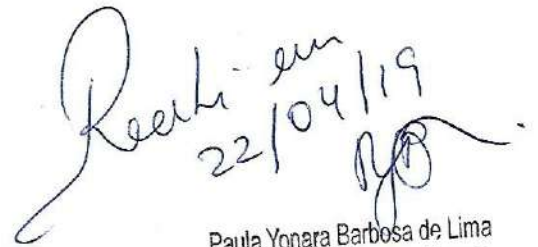 Recebi em
22/04/19
Paula Yonara Barbosa de Lima